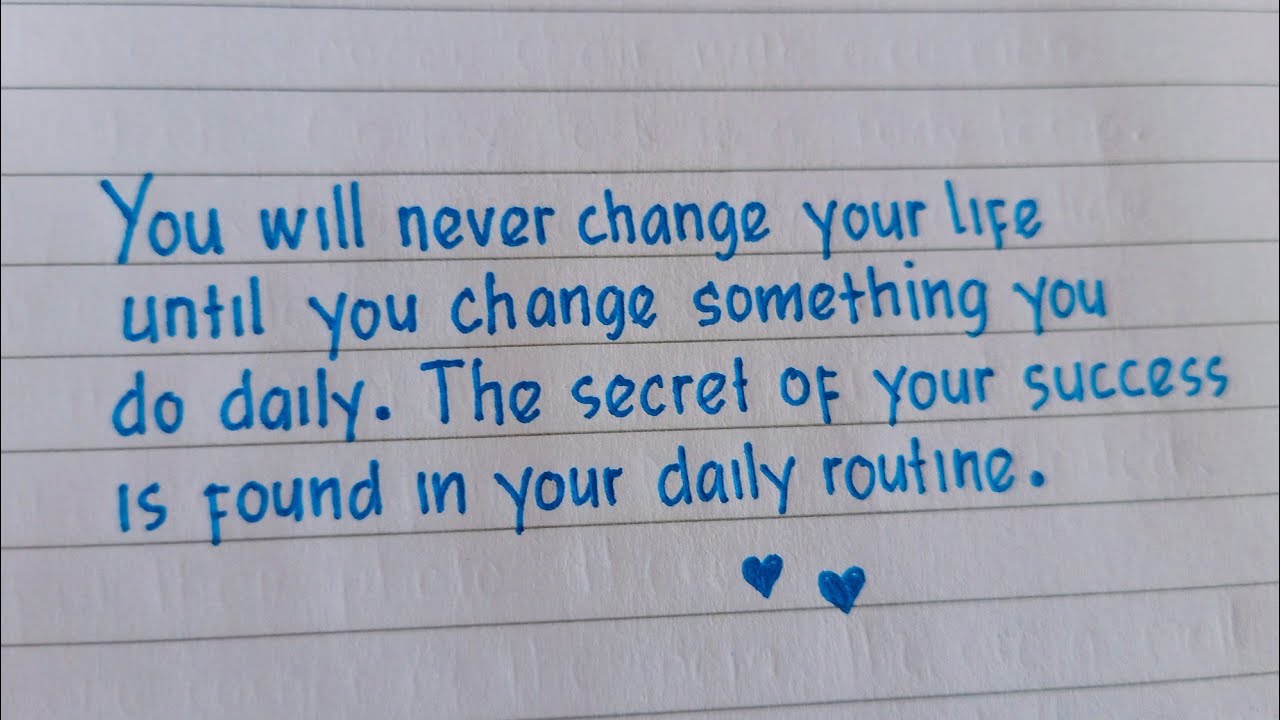 You will never change your life
until you change something you
do daily. The secret of your success
is found in your daily routine.